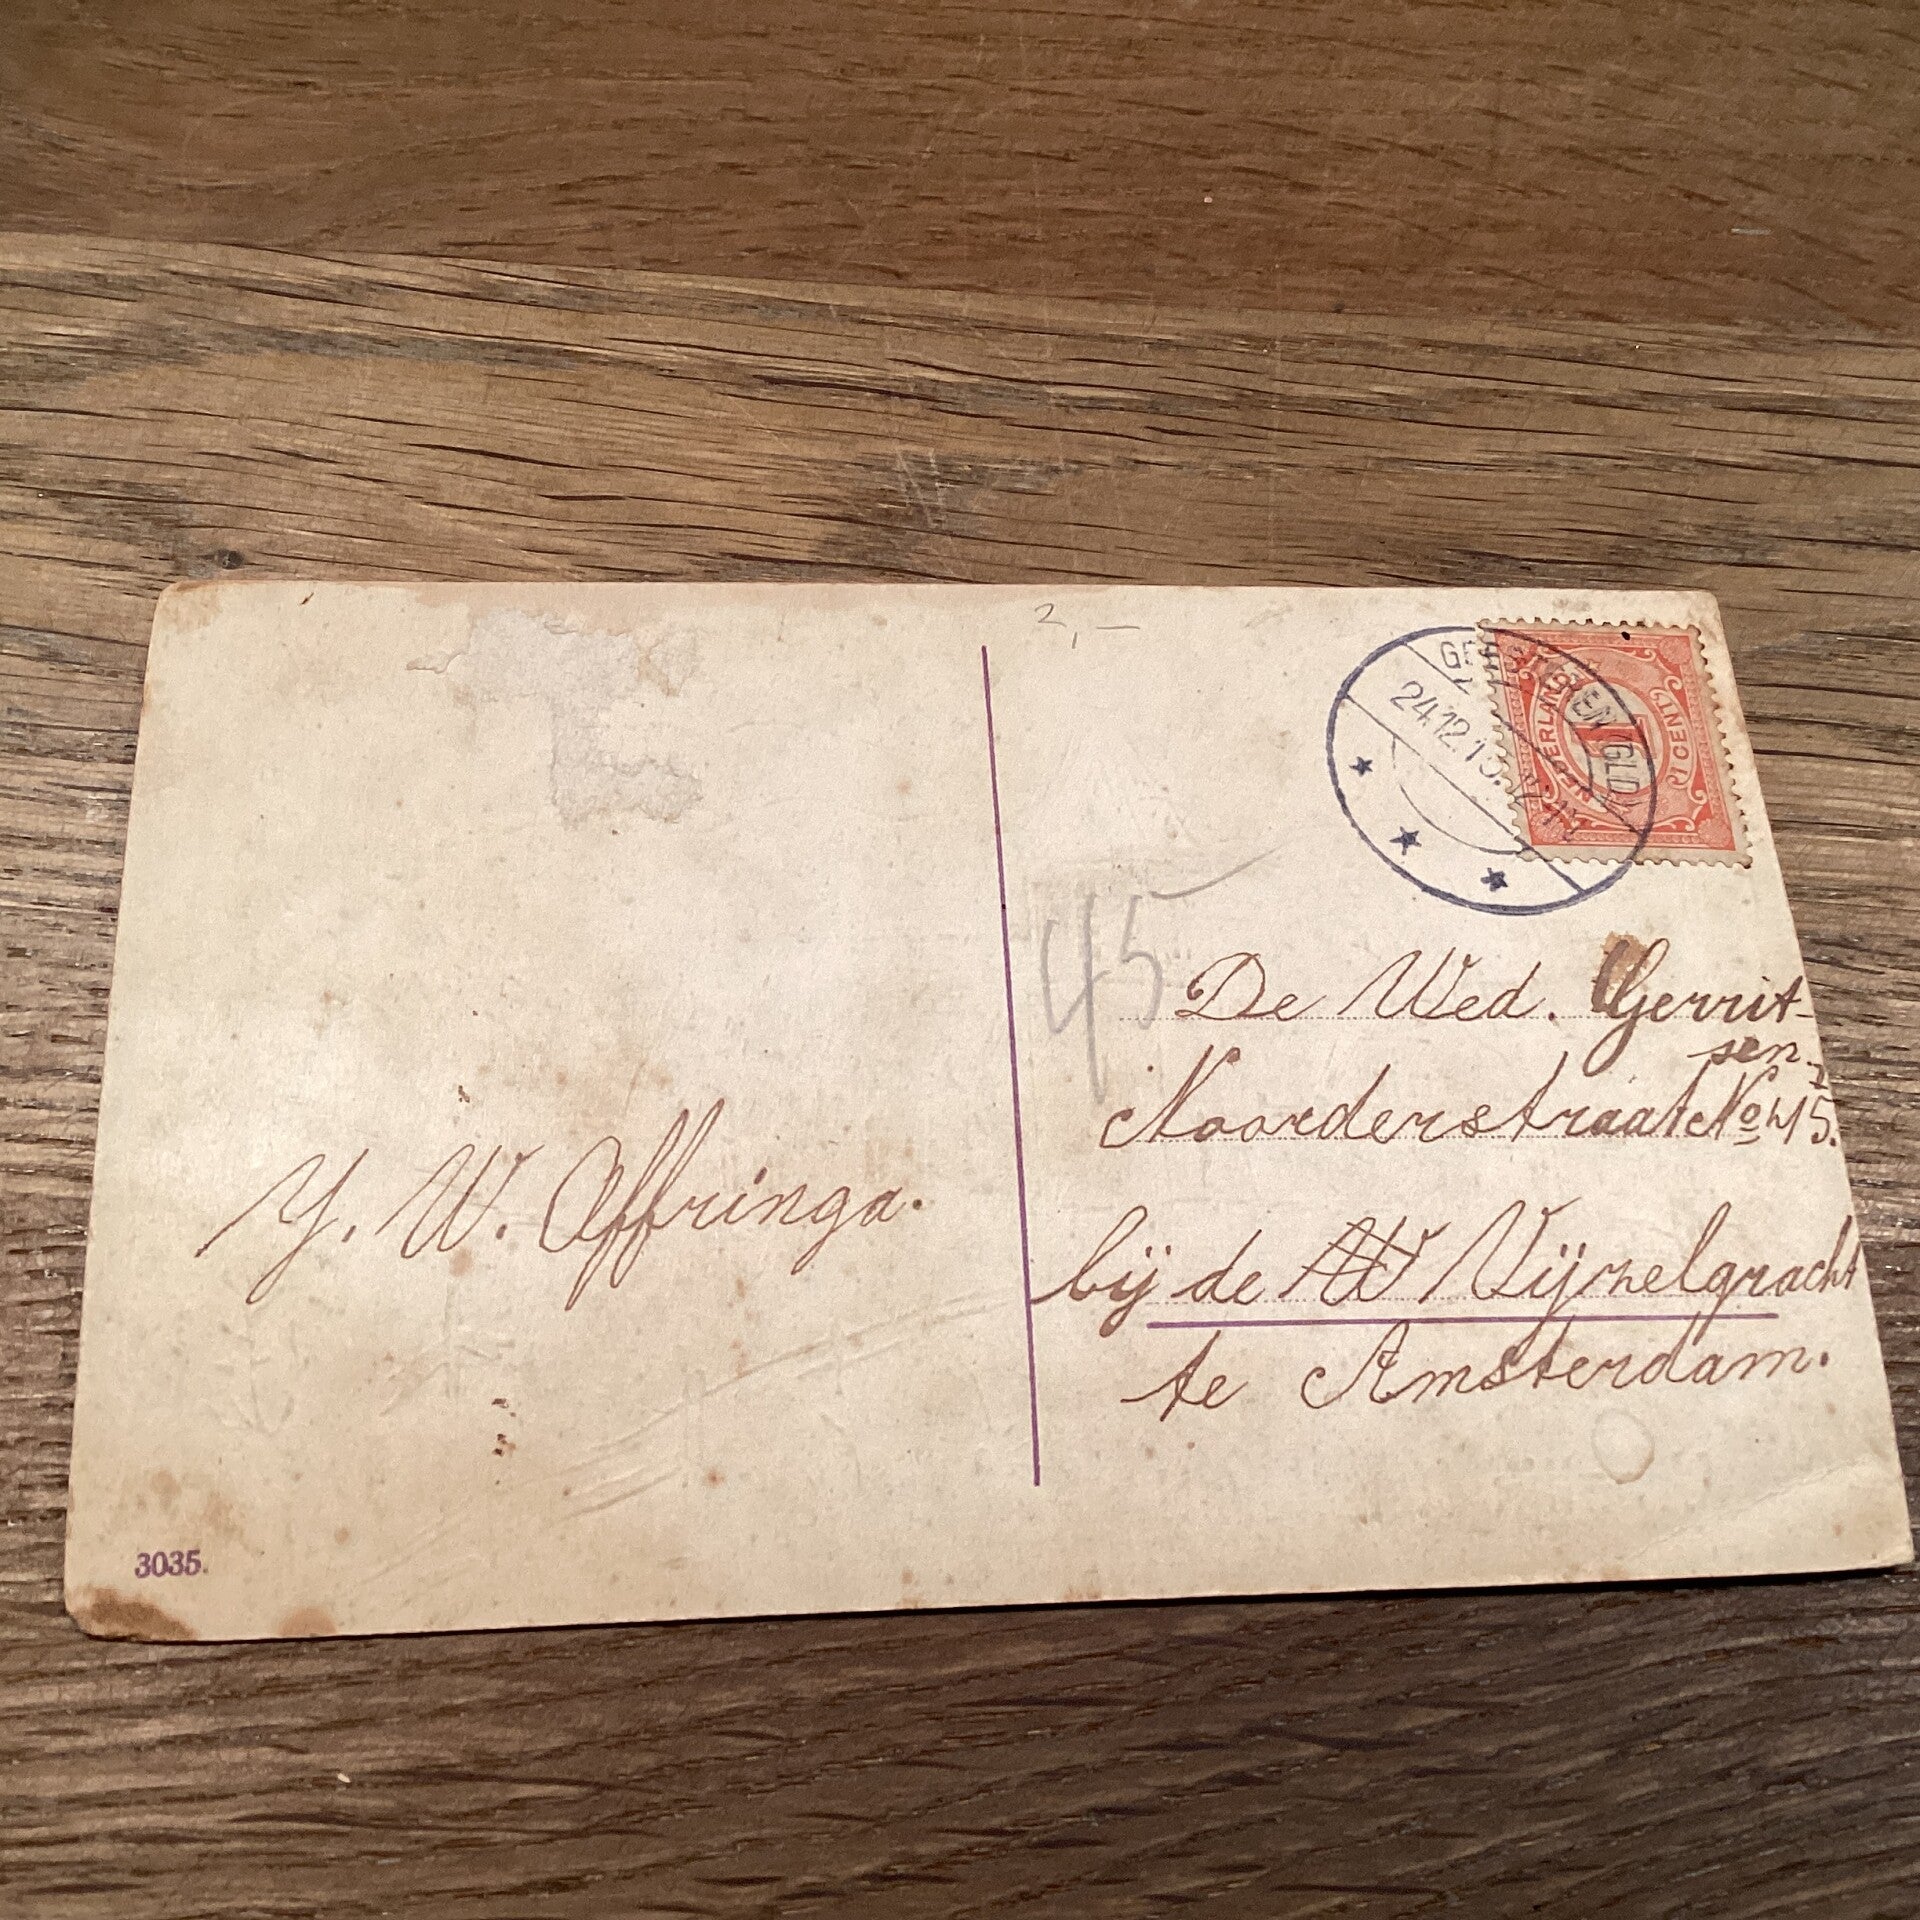 2,-
24.12.1
NEDERLAND
1 CENT
(GLD)
45
De Wed. Gerrit-
sen.
Noorderstraat No 45.
bij de Vijzelgracht
te Amsterdam.
Y. W. Offringa.
3035.